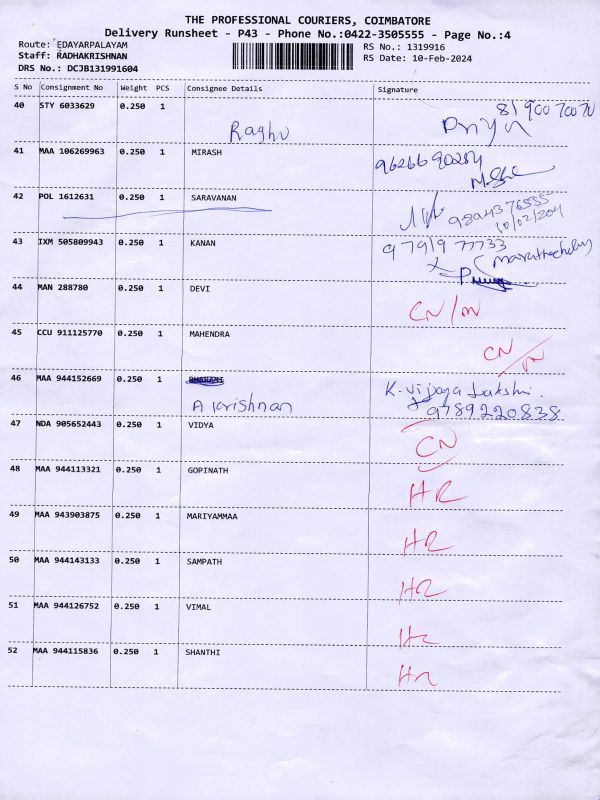 THE PROFESSIONAL COURIERS, COIMBATORE
Delivery Runsheet - P43 - Phone No.:0422-3505555 - Page No.:4
Route: EDAYARPALAYAM
RS No.: 1319916
Staff: RADHAKRISHNAN
RS Date: 10-Feb-2024
DRS No.: DCJB131991604
S No Consignment No Weight PCS Consignee Details Signature
40 STY 6033629 0.250 1 8190070070
Raghu Priya
41 MAA 106269963 0.250 1 MIRASH 9626690284
42 POL 1612631 0.250 1 SARAVANAN 9894376555
10/02/2024
43 IXM 505809943 0.250 1 KANAN 9791977733
44 MAN 288780 0.250 1 DEVI
CN/IN
45 CCU 911125770 0.250 1 MAHENDRA
CN/IN
46 MAA 944152669 0.250 1 K. Vijaya Lakshmi.
A krishnan 9789220838
47 NDA 905652443 0.250 1 VIDYA CN
48 MAA 944113321 0.250 1 GOPINATH HR
49 MAA 943903875 0.250 1 MARIYAMMAA HR
50 MAA 944143133 0.250 1 SAMPATH HR
51 MAA 944126752 0.250 1 VIMAL HR
52 MAA 944115836 0.250 1 SHANTHI HR